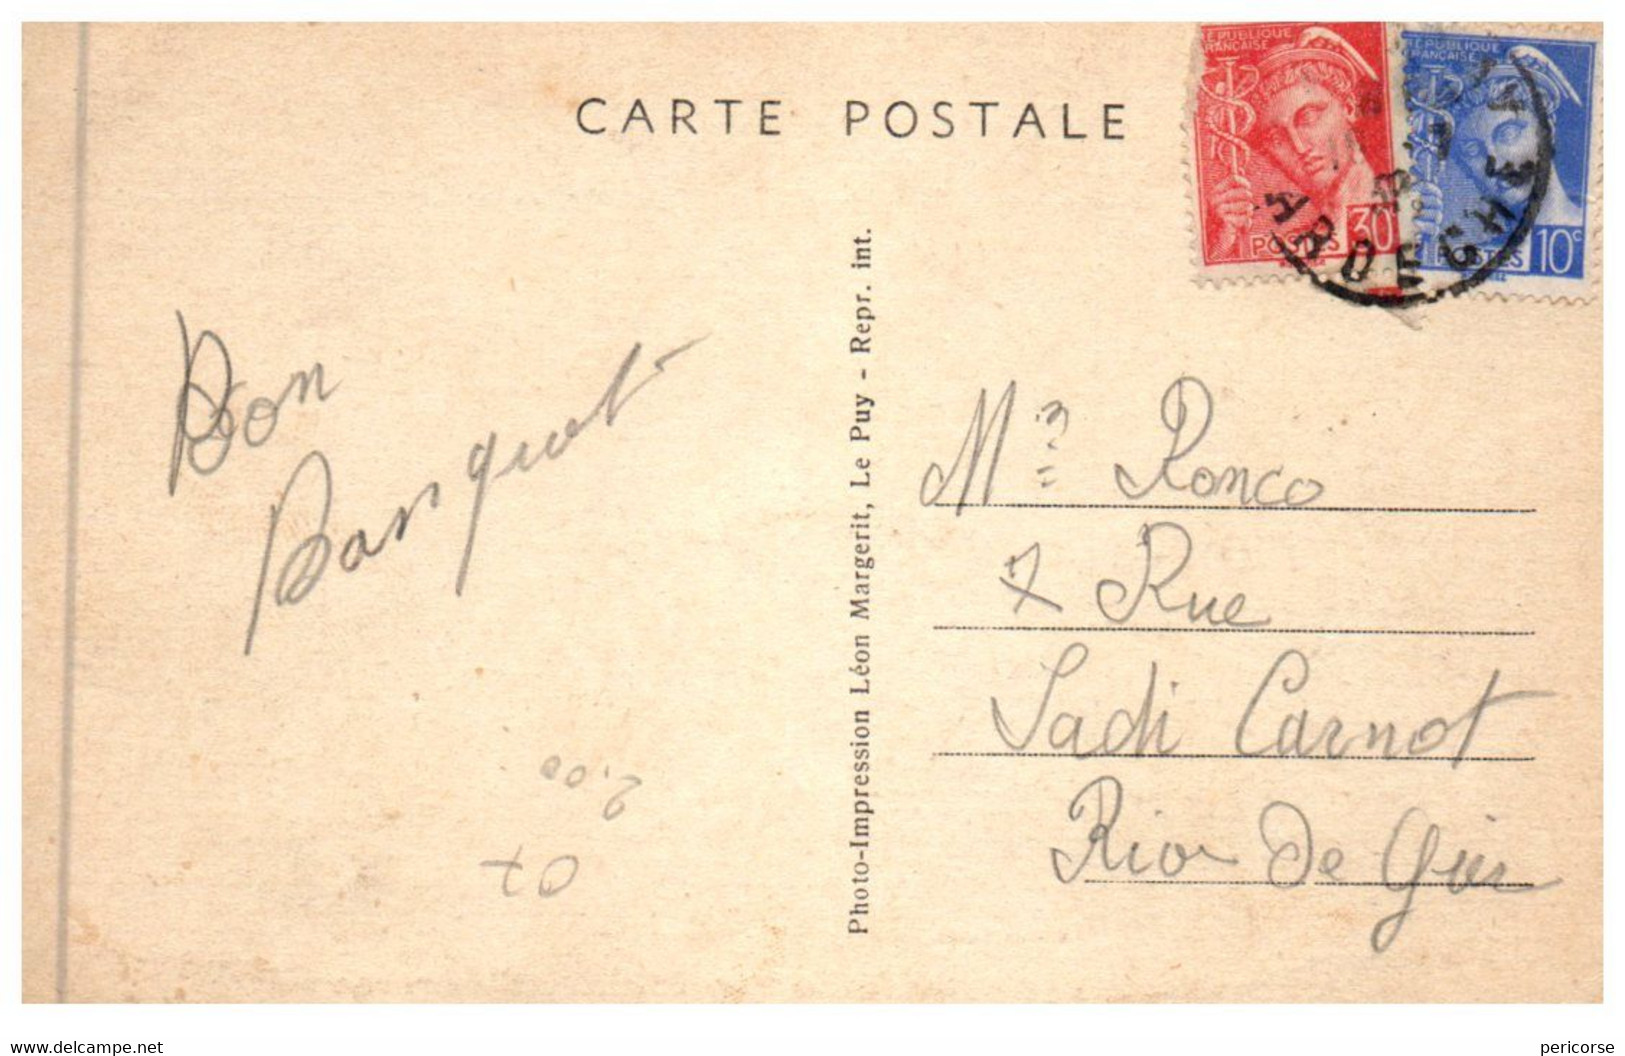 CARTE POSTALE
RÉPUBLIQUE
FRANÇAISE
30
POSTES
RÉPUBLIQUE
FRANÇAISE
10c
POSTES
ARDECHE
Bon
Banquet
2,00
07
Photo-Impression Léon Margerit, Le Puy - Repr. int.
Ronco
7 Rue
Sadi Carnot
Rive De Gier
www.delcampe.net
pericorse